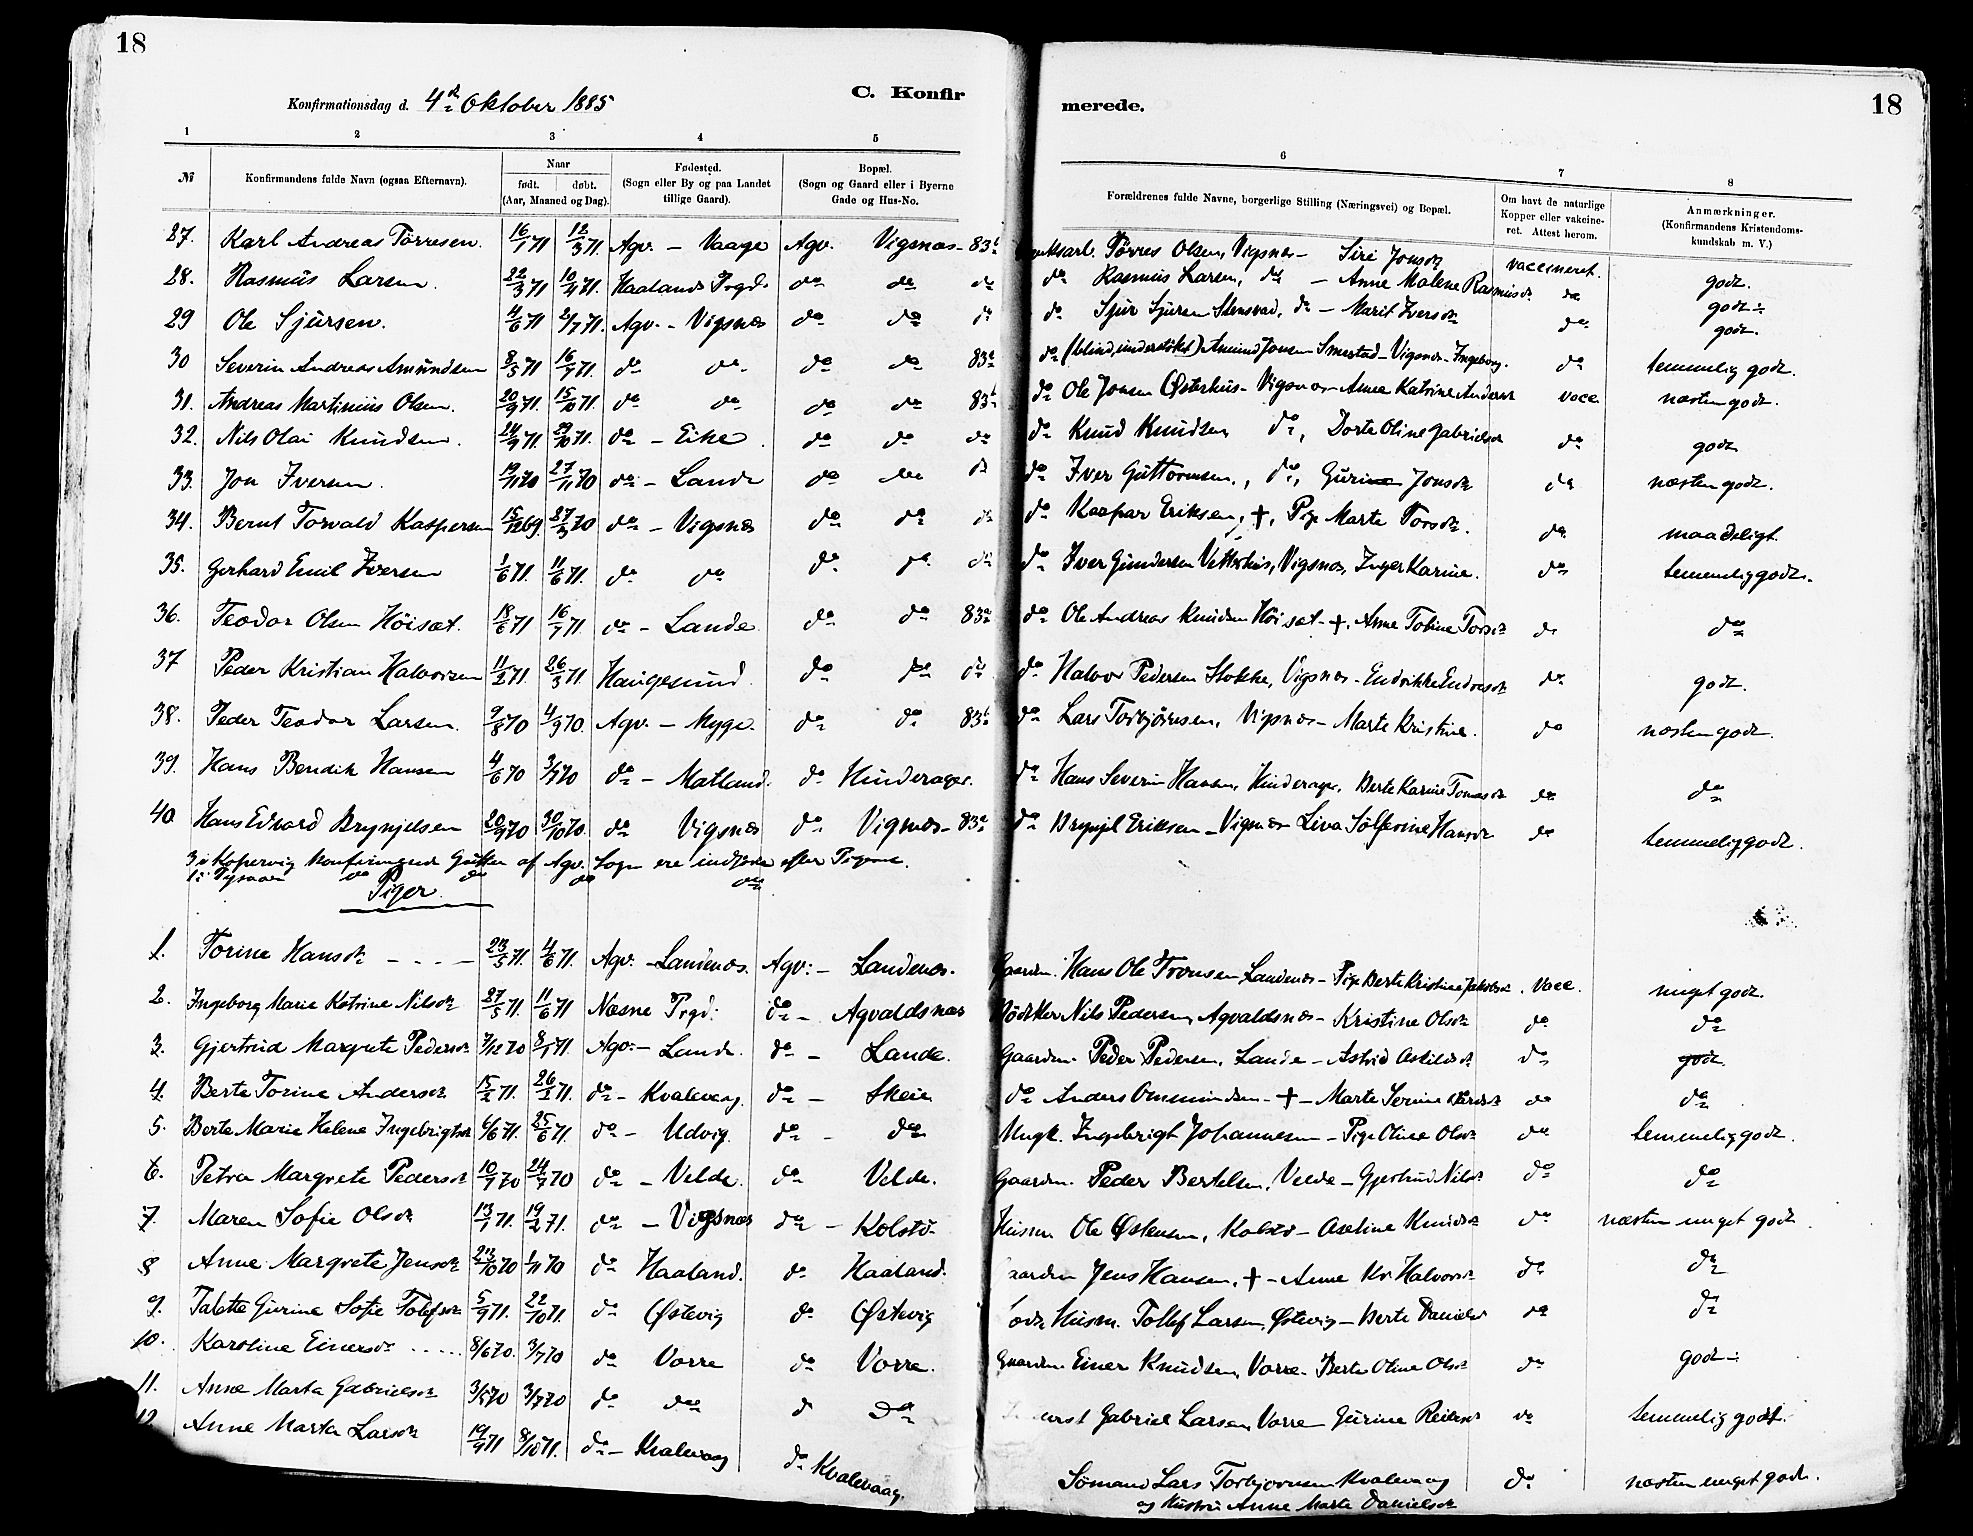 18
18
Konfirmationsdag d. 4de Oktober 1885
C. Konfirmerede.
1 2 3 4 5 6 7 8
№
Konfirmandens fulde Navn (ogsaa Efternavn).
Naar
født. døbt.
(Aar, Maaned og Dag).
Fødested.
(Sogn eller By og paa Landet
tillige Gaard).
Bopæl.
(Sogn og Gaard eller i Byerne
Gade og Hus-No.
Forældrenes fulde Navne, borgerlige Stilling (Næringsvei) og Bopæl.
Om havt de naturlige
Kopper eller vakcine-
ret. Attest herom.
Anmærkninger.
(Konfirmandens Kristendoms-
kundskab m. V.)
27. Karl Andreas Tørresen. 16/1 71 12/3 71 Agv. - Vaage Agv. Vigsnæs - 83b Tørres Olsen, Vigsnæs - Siri Jonsdt vaccineret. godt.
28. Rasmus Larsen. 22/3 71 10/4 71. Haalands Prgd. do do do do Rasmus Larsen, do - Anne Malene Rasmusdt do godt
29 Ole Sjursen. 4/6 71 2/7 71. Agv. - Vigsnæs do do do do Sjur Sjursen Stensvad, do - Marit Iversdt do godt.
30 Severin Andreas Amundsen 8/5 71 16/7 71. do do do do 83a do (blind, understøttet) Amund Jonsen Smestad - Vigsnæs - Ingeborg. do temmelig godt.
31. Andreas Martinius Olsen. 20/9 71. 15/10 71. do do do do 83b do Ole Jonsen Østerhus - Vigsnæs - Anne Katrine Andersdt vacc. næsten godt.
32. Nils Olai Knudsen. 24/9 71. 29/10 71. do - Eike do do do do Knud Knudsen do, Dorte Oline Gabrielsdt do godt
33. Jon Iversen. 19/11 70 27/11 70 do - Lande do do do do Iver Guttormsen, do, Guri Jonsdt do næsten godt.
34. Bernt Torvald Kaspersen 15/12 69. 27/3 70 do - Vigsnæs do do do do Kaspar Eriksen, †, Pige Marte Torsdt. do maadeligt.
35. Gerhard Emil Iversen 1/6 71. 11/6 71. do do do do do do Iver Gundersen Vetterhus, Vigsnæs, Inger Karine. do temmelig godt.
36. Teodor Olsen Høisæt. 18/6 71 16/7 71. do - Lande. do do 83a do Ole Andreas Knudsen Høisæt - †. Anne Tobine Torsdt do do
37 Peder Kristian Halvorsen 11/2 71. 26/3 71. Haugesund. do do do do Halvor Pedersen Stokke, Vigsnæs - Endrikke Endresdt do godt.
38. Peder Teodor Larsen. 9/8 70 4/9 70. Agv. - Myge. do do 83b do Lars Torbjørnsen, Vigsnæs - Marte Kristine. do næsten godt.
39. Hans Bendik Hansen 4/6 70 3/7 70 do - Matland. do Hinderager. do Hans Severin Hansen, Hinderager, Berte Karine Tomasdt do do
40. Hans Edvard Brynjelsen 20/9 70 30/10 70. do Vigsnæs do Vigsnæs - 83a do Brynjel Eriksen - Vigsnæs Liva Solferine Hansdt do temmelig godt.
3 i Kopervig konfirmerede Gutter af Agv. Sogn ere indførte efter Pigerne.
1 i Tysvær do do do do
Piger.
1. Torine Hansdt - - - 23/5 71. 4/6 71. Agv. - Landenæs. Agv: - Landenæs. Gaardm. Hans Ole Tronsen Landenæs - Pige Berte Kristine Jakobsdt. Vacc. meget godt.
2. Ingeborg Marie Katrine Nilsdt 27/5 71. 11/6 71 Næsne Prgd: do - Agvaldsnæs Bødker Nils Pedersen, Agvaldsnæs - Kristine Olsdt do do
3. Gjertrud Margrete Pedersdt 7/12 70 8/1 71. Agv: - Lande. do - Lande. Gaardm. Peder Pedersen, Lande - Astrid Askildsdt do godt.
4. Berte Torine Andersdt 15/2 71. 26/2 71. do - Kvalevaag. do - Skeie do Anders Ommundsen - † - Marte Serine do do
5. Berte Marie Helene Ingebrigtsdt 4/6 71. 25/6 71. do - Udvig. do - do Ungk. Ingebrigt Johannesen - Pige Oline Olsdt do temmelig godt.
6. Petra Margrete Pedersdt 10/7 70 24/7 70 do - Velde. do Velde. Gaardm. Peder Bertelsen, Velde - Gjertrud Nilsdt do do
7. Maren Sofie Olsdt 13/1 71. 19/2 71. do - Vigsnæs do - Kolstø. Husm. Ole Østensen, Kolstø - Aseline Knudsdt do næsten meget godt.
8 Anne Margrete Jensdt 23/10 70 1/11 70 do Haaland. do Haaland. aardm Jens Hansen, † - Anne Kr. Halvorsdt do do
9. Talette Gurine Sofie Tolefsdt 5/9 71. 22/10 71. do Østevig do Østevig Husm. Tollef Larsen, Østevig - Berte Danielsdt do do
10. Karoline Einersdt ..... 8/6 70. 3/7 70 do Vorre do Vorre. Gaardm. Einer Knudsen, Vorre. Berte Oline Olsdt do godt
11. Anne Marta Gabrielsdt 3/5 70 3/7 70 do do do do Gabriel Larsen, Vorre Gurine Reiersdt do temmelig godt.
12 Anne Marta Larsdt 19/9 71 8/10 71. do - Kvalevaag do Kvalevaag. Sømand Lars Torbjørnsen Kvalevaag do næsten meget godt.
og Hustru Anne Marte Danielsdt